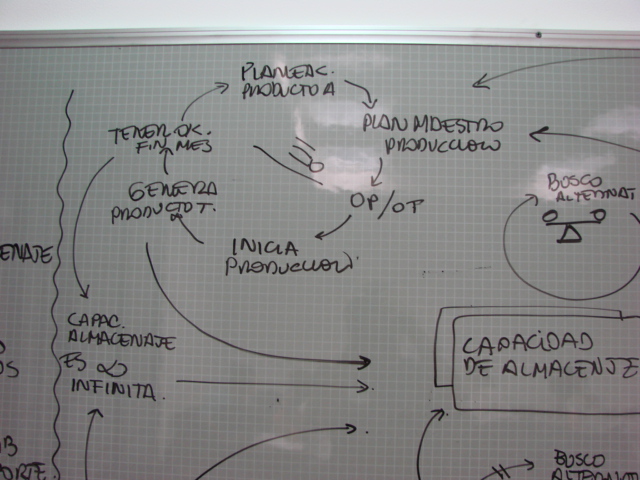 PLANEAC.
PRODUCTO A
TENER OK.
FIN MES
PLAN MAESTRO
PRODUCCION
GENERA
PRODUCTO T.
OP/OT
INICIA
PRODUCCION
BUSCO
ALTERNAT
ENAJE
CAPAC.
ALMACENAJE
ES ∞
INFINITA.
CAPACIDAD
DE ALMACENJE
OS
BUSCO
ALTERNAT
ORTE.